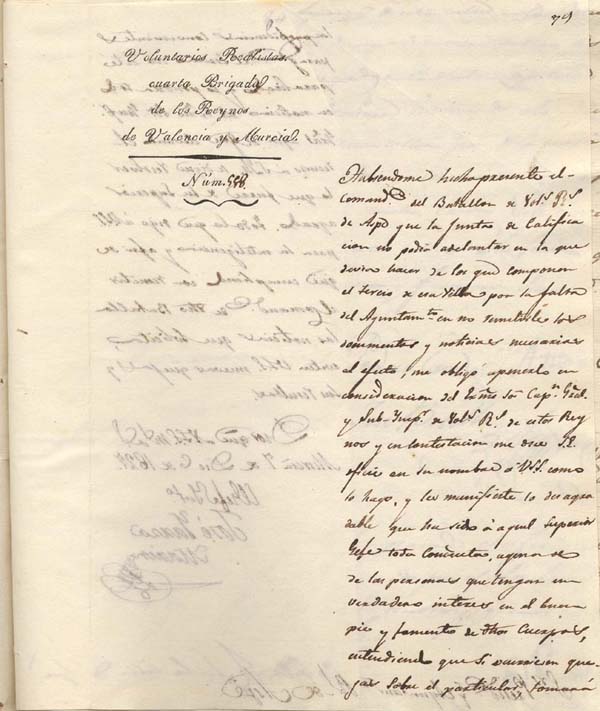 79
Voluntarios Realistas.
cuarta Brigada
de los Reynos
de Valencia y Murcia.
Núm. 558.
Habiendome hecho presente el
Comand.te del Batallon de Vol.s R.s
de Aspe que la Junta de Califica
cion no podia adelantar en la que
devia hacer de los que componen
el tercio de esa Villa por la falta
del Ayuntam.to en no remitirle los
documentos y noticias necesarias
al efecto, me obligó aponerlo en
consideracion del Exmo Sor Cap.n Gral.
y Sub-Insp.r de Vol.s R.s de estos Rey
nos y en contestacion me dice S.E.
oficie en su nombre á V.SS. como
lo hago, y les manifieste lo desagra
dable que ha sido á aquel Superior
Gefe tal conducta, agena
de las personas que tengan un
verdadero interes en el buen
pie y fomento de dhos Cuerpos,
entendiendo que si ocurriesen que
jas sobre el particular, tomará